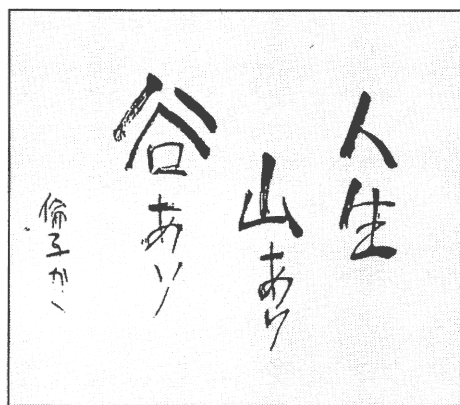 人生
山あり
谷あり
倫子かく